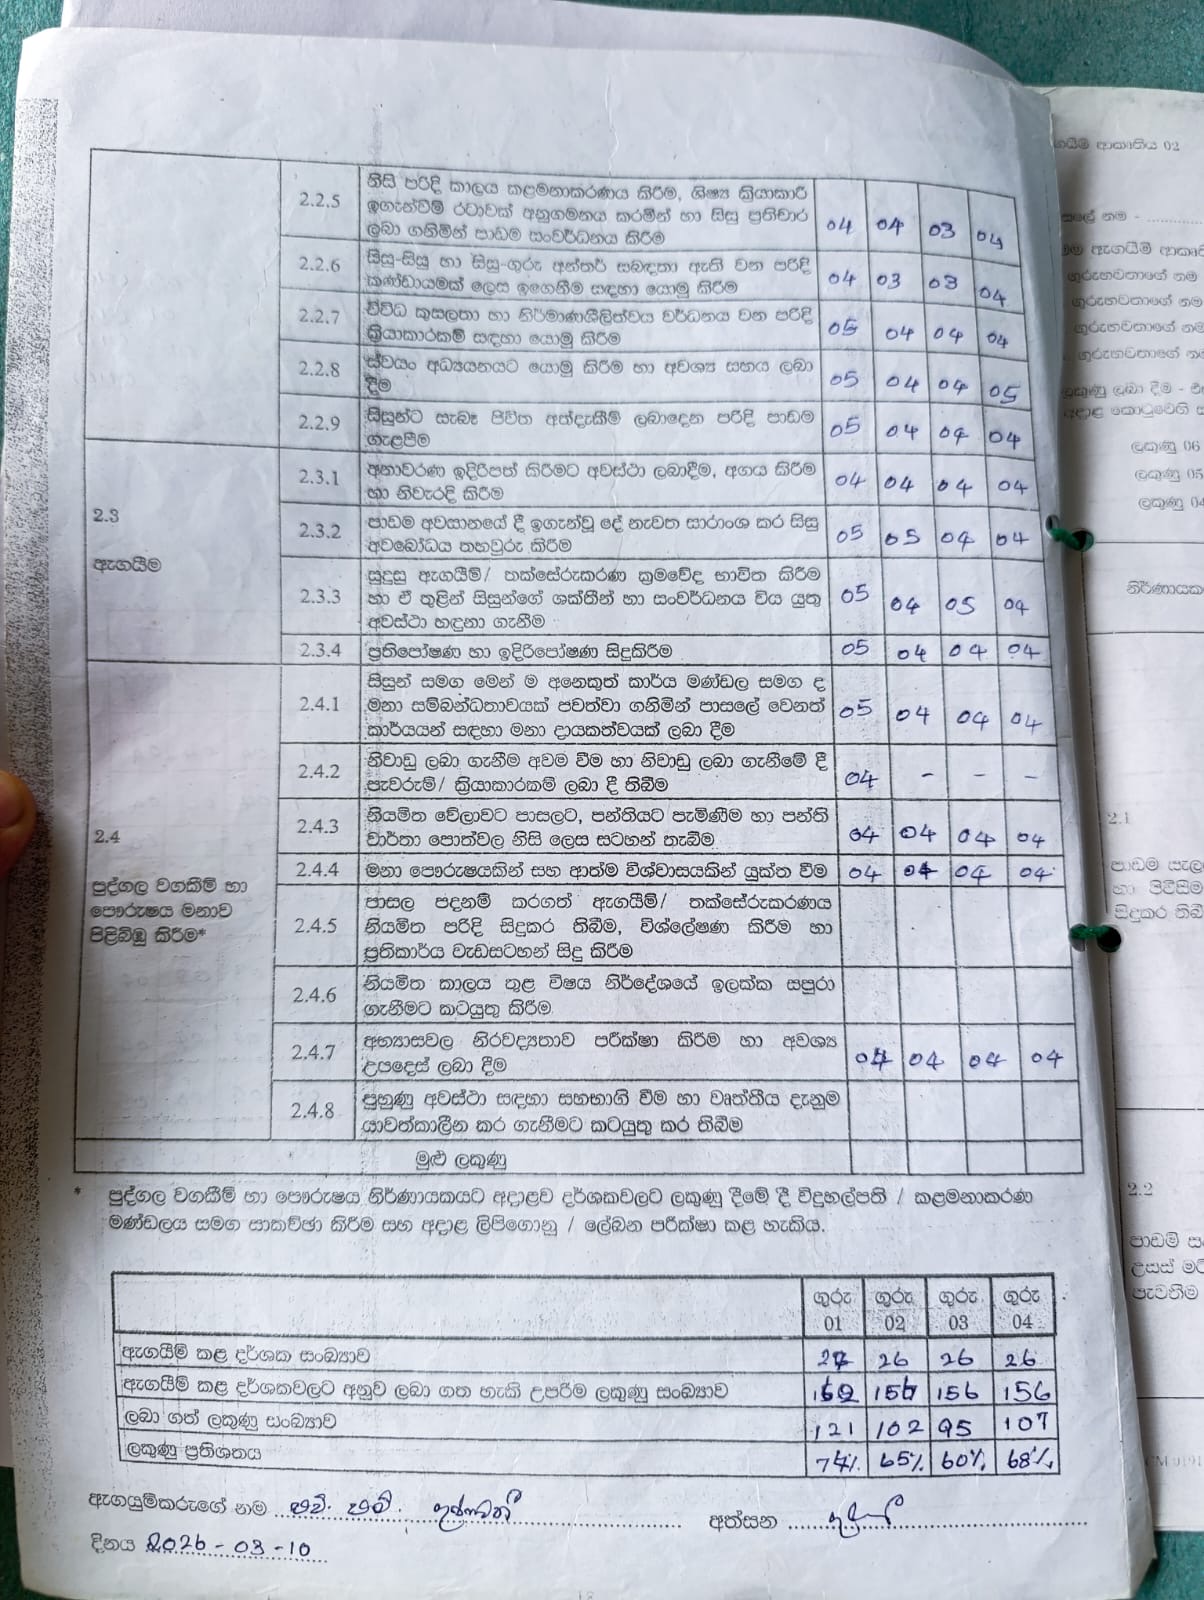 2.2.5 නිසි පරිදි කාලය කළමනාකරණය කිරීම, ශිෂ්‍ය ක්‍රියාකාරී
ඉගැන්වීම් රටාවක් අනුගමනය කරමින් හා සිසු ප්‍රතිචාර
ලබා ගනිමින් පාඩම සංවර්ධනය කිරීම 04 04 03 04
2.2.6 සිසු-සිසු හා සිසු-ගුරු අන්තර් සබඳතා ඇති වන පරිදි
කණ්ඩායමක් ලෙස ඉගෙනීම සඳහා යොමු කිරීම 04 03 03 04
2.2.7 විවිධ කුසලතා හා නිර්මාණශීලිත්වය වර්ධනය වන පරිදි
ක්‍රියාකාරකම් සඳහා යොමු කිරීම 05 04 04 04
2.2.8 ස්වයං අධ්‍යයනයට යොමු කිරීම හා අවශ්‍ය සහය ලබා
දීම 05 04 04 05
2.2.9 සිසුන්ට සැබෑ ජීවිත අත්දැකීම් ලබාදෙන පරිදි පාඩම
ගැළපීම 05 04 04 04
2.3
ඇගයීම
2.3.1 අනාවරණ ඉදිරිපත් කිරීමට අවස්ථා ලබාදීම, අගය කිරීම
හා නිවැරදි කිරීම 04 04 04 04
2.3.2 පාඩම අවසානයේ දී ඉගැන්වූ දේ නැවත සාරාංශ කර සිසු
අවබෝධය තහවුරු කිරීම 05 05 04 04
2.3.3 සුදුසු ඇගයීම්/ තක්සේරුකරණ ක්‍රමවේද භාවිත කිරීම
හා ඒ තුළින් සිසුන්ගේ ශක්තීන් හා සංවර්ධනය විය යුතු
අවස්ථා හඳුනා ගැනීම 05 04 05 04
2.3.4 ප්‍රතිපෝෂණ හා ඉදිරිපෝෂණ සිදුකිරීම 05 04 04 04
2.4
පුද්ගල වගකීම් හා
පෞරුෂය මනාව
පිළිබිඹු කිරීම*
2.4.1 සිසුන් සමග මෙන් ම අනෙකුත් කාර්ය මණ්ඩල සමග ද
මනා සම්බන්ධතාවයක් පවත්වා ගනිමින් පාසලේ වෙනත්
කාර්යයන් සඳහා මනා දායකත්වයක් ලබා දීම 05 04 04 04
2.4.2 නිවාඩු ලබා ගැනීම අවම වීම හා නිවාඩු ලබා ගැනීමේ දී
පැවරුම්/ ක්‍රියාකාරකම් ලබා දී තිබීම 04 - - -
2.4.3 නියමිත වේලාවට පාසලට, පන්තියට පැමිණීම හා පන්ති
වාර්තා පොත්වල නිසි ලෙස සටහන් තැබීම 04 04 04 04
2.4.4 මනා පෞරුෂයකින් සහ ආත්ම විශ්වාසයකින් යුක්ත වීම 04 04 04 04
2.4.5 පාසල පදනම් කරගත් ඇගයීම්/ තක්සේරුකරණය
නියමිත පරිදි සිදුකර තිබීම, විශ්ලේෂණ කිරීම හා
ප්‍රතිකාර්ය වැඩසටහන් සිදු කිරීම
2.4.6 නියමිත කාලය තුළ විෂය නිර්දේශයේ ඉලක්ක සපුරා
ගැනීමට කටයුතු කිරීම
2.4.7 අභ්‍යාසවල නිරවද්‍යතාව පරීක්ෂා කිරීම හා අවශ්‍ය
උපදෙස් ලබා දීම 04 04 04 04
2.4.8 පුහුණු අවස්ථා සඳහා සහභාගි වීම හා වෘත්තීය දැනුම
යාවත්කාලීන කර ගැනීමට කටයුතු කර තිබීම
මුළු ලකුණු
* පුද්ගල වගකීම් හා පෞරුෂය නිර්ණායකයට අදාළව දර්ශකවලට ලකුණු දීමේ දී විදුහල්පති / කළමනාකරණ
මණ්ඩලය සමග සාකච්ඡා කිරීම සහ අදාළ ලිපිගොනු / ලේඛන පරීක්ෂා කළ හැකිය.
ගුරු 01 ගුරු 02 ගුරු 03 ගුරු 04
ඇගයීම් කළ දර්ශක සංඛ්‍යාව 27 26 26 26
ඇගයීම් කළ දර්ශකවලට අනුව ලබා ගත හැකි උපරිම ලකුණු සංඛ්‍යාව 162 156 156 156
ලබා ගත් ලකුණු සංඛ්‍යාව 121 102 95 107
ලකුණු ප්‍රතිශතය 74% 65% 60% 68%
ඇගයුම්කරුගේ නම අත්සන
දිනය 2026-03-10
ආකෘතිය 02
ලකුණු 06
ලකුණු 05
ලකුණු 04
2.1
2.2